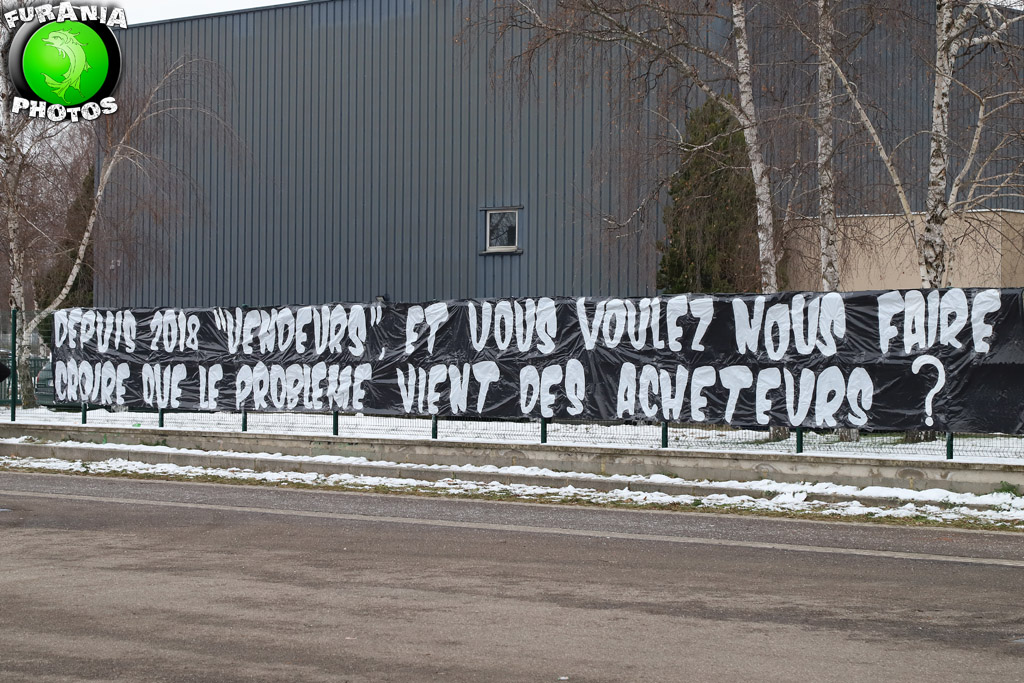 FURANIA
PHOTOS
DEPUIS 2018 "VENDEURS", ET VOUS VOULEZ NOUS FAIRE
CROIRE QUE LE PROBLEME VIENT DES ACHETEURS ?